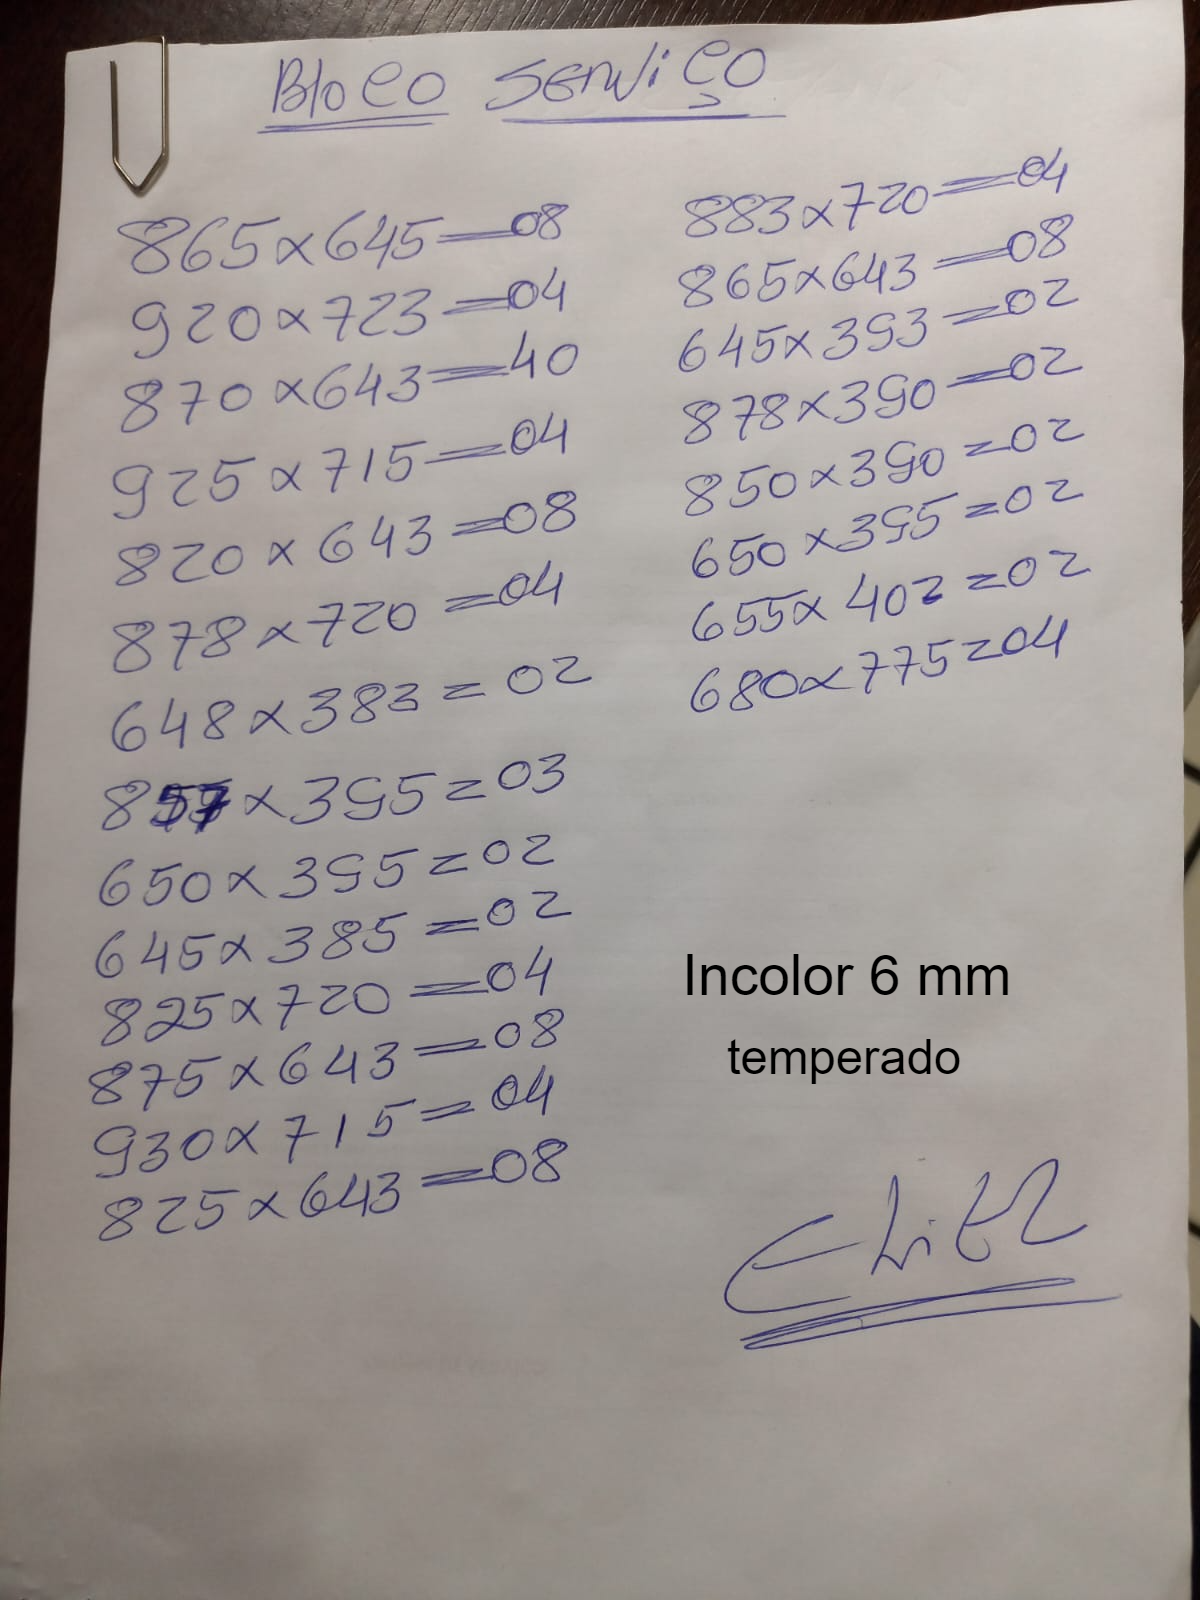 Bloco Serviço
865x645=08
920x723=04
870x643=40
925x715=04
820x643=08
878x720=04
648x383=02
857x395=03
650x395=02
645x385=02
825x720=04
875x643=08
930x715=04
825x643=08
883x720=04
865x643=08
645x393=02
878x390=02
850x390=02
650x395=02
655x402=02
680x775=04
Incolor 6 mm
temperado